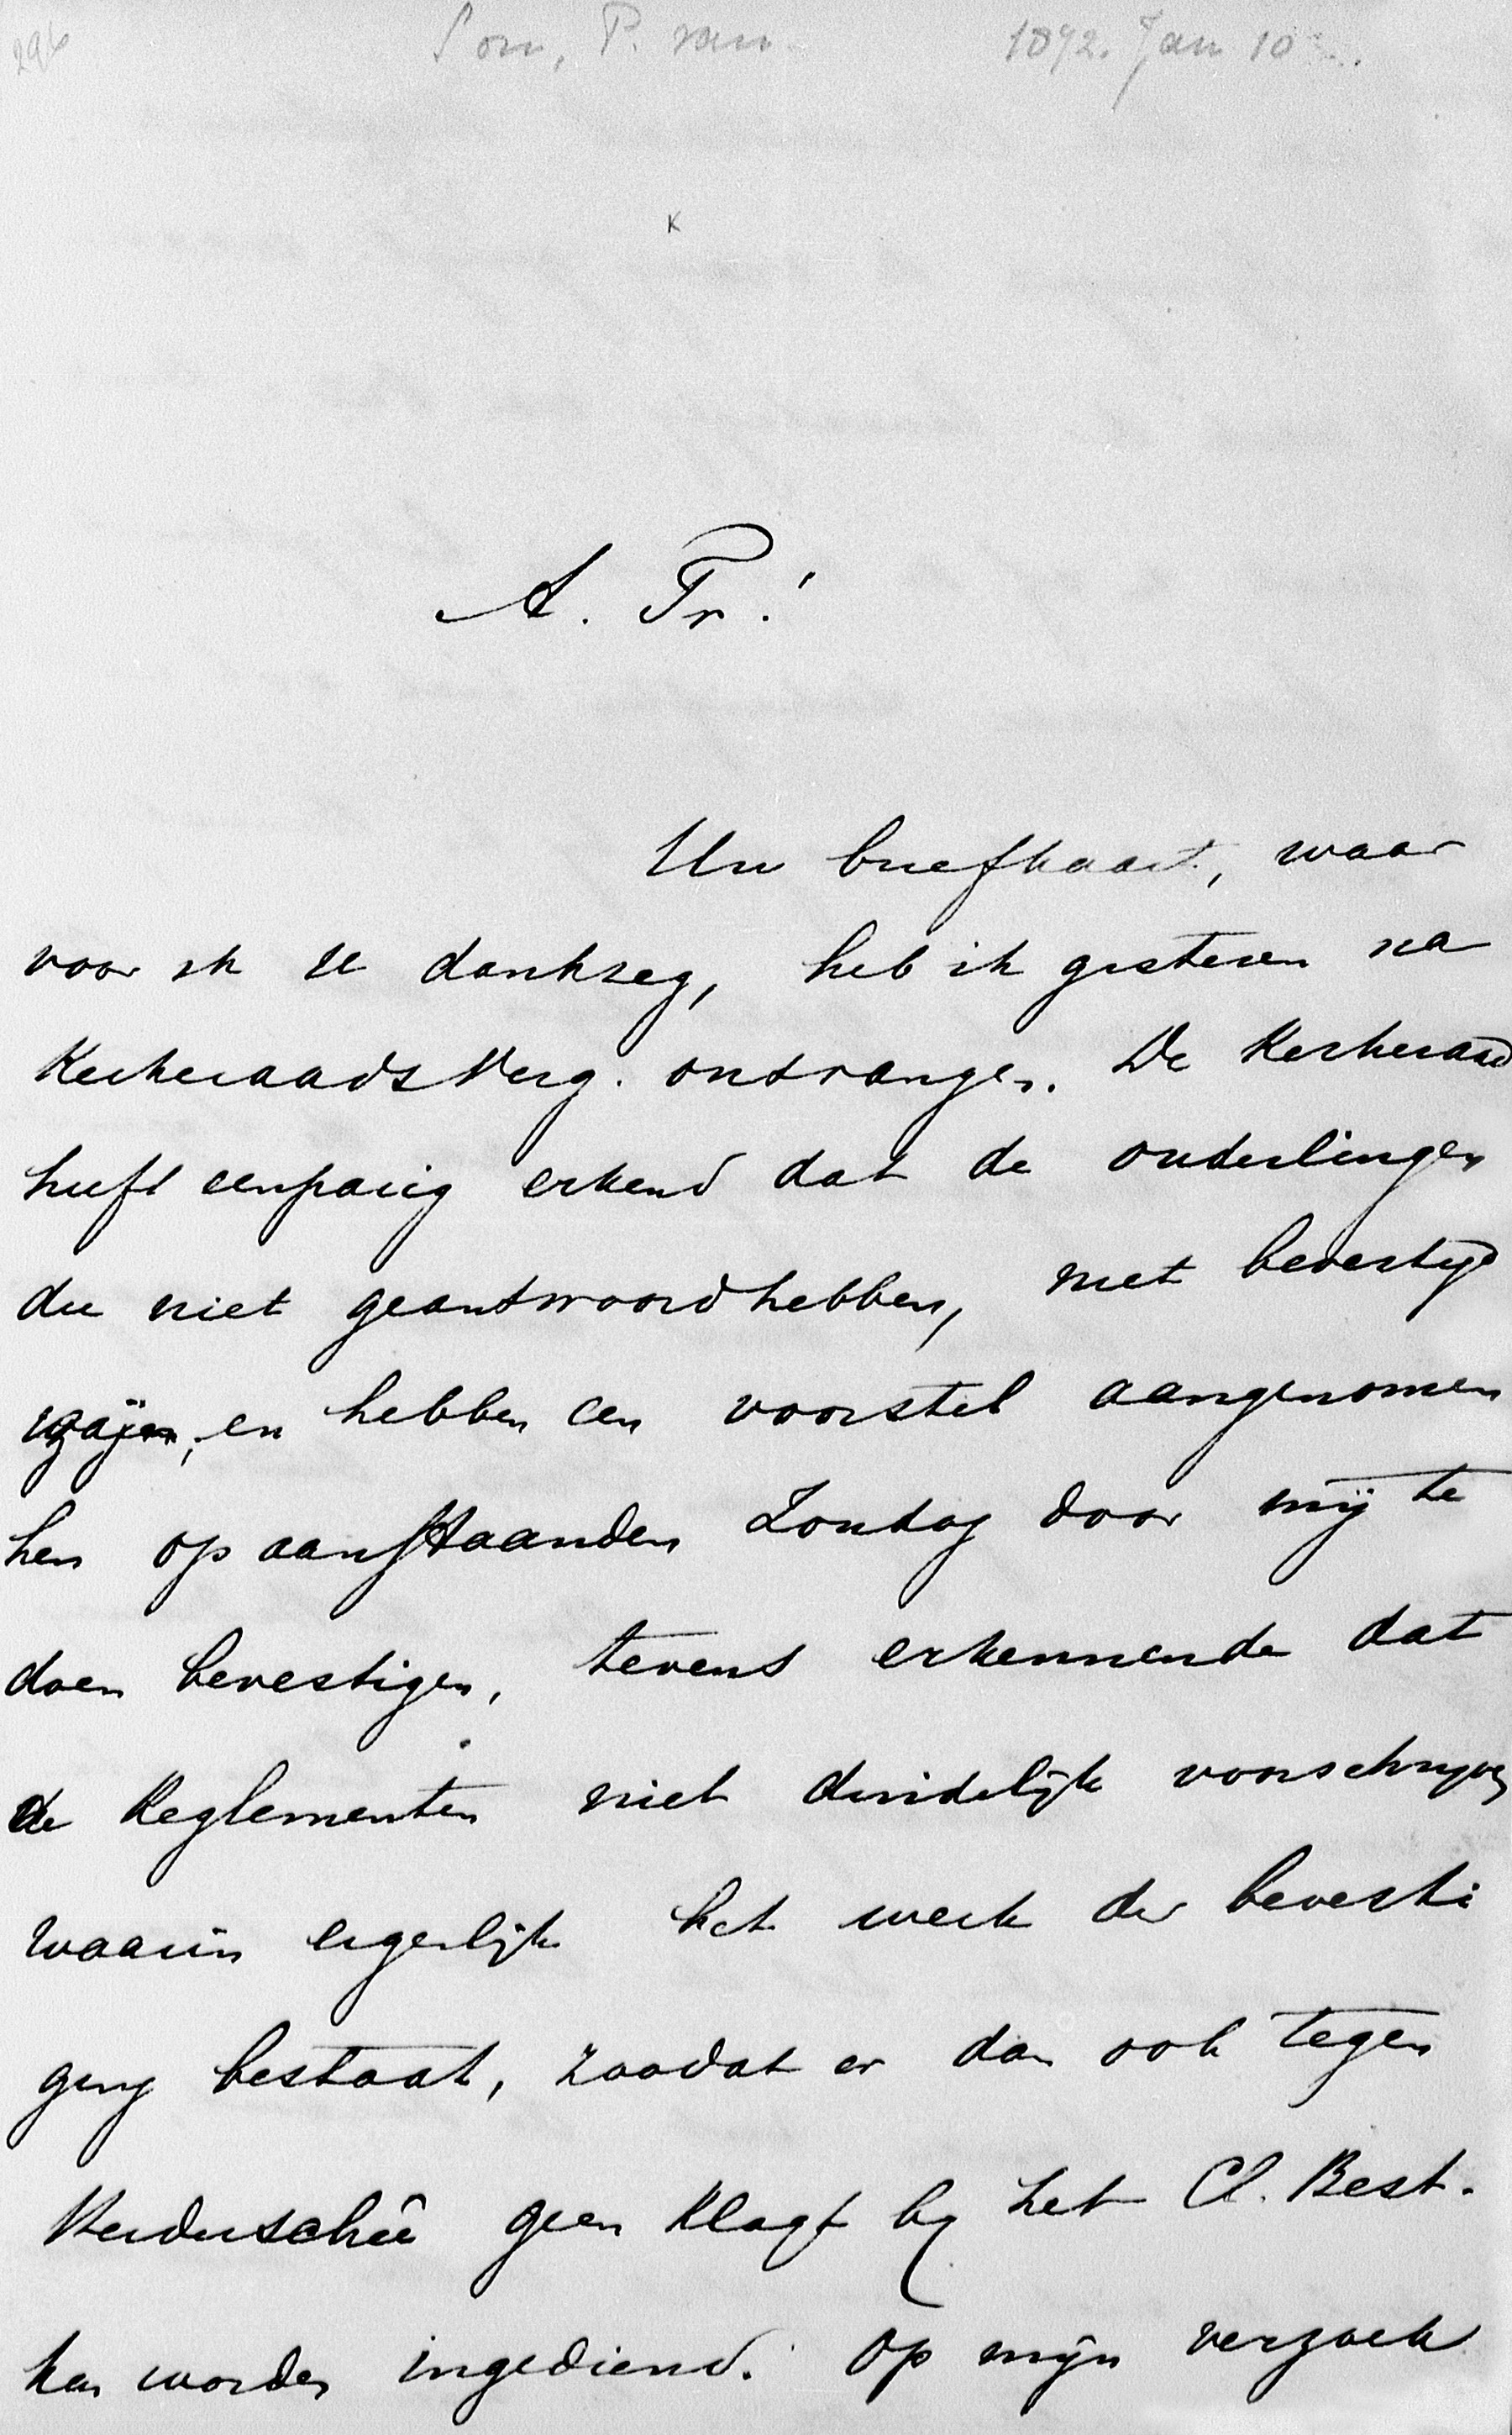 296
Som, P. van. 1892. Jan 10
K
A. Fr.!
Uw briefkaart, waar
voor ik U dankzeg, heb ik gisteren na
KerkeraadsVerg. ontvangen. De Kerkeraad
heeft eenparig erkend dat de ouderlingen
die niet geantwoord hebben, niet bevestigd
zijn, en hebben een voorstel aangenomen
hen op aanstaanden Zondag door mij te
doen bevestigen, tevens erkennende dat
de Reglementen niet duidelijk voorschrijven
waarin eigenlijk het werk der bevesti
ging bestaat, zoodat er dan ook tegen
geen klagt bij het Cl. Best.
kan worden ingediend. Op mijn verzoek